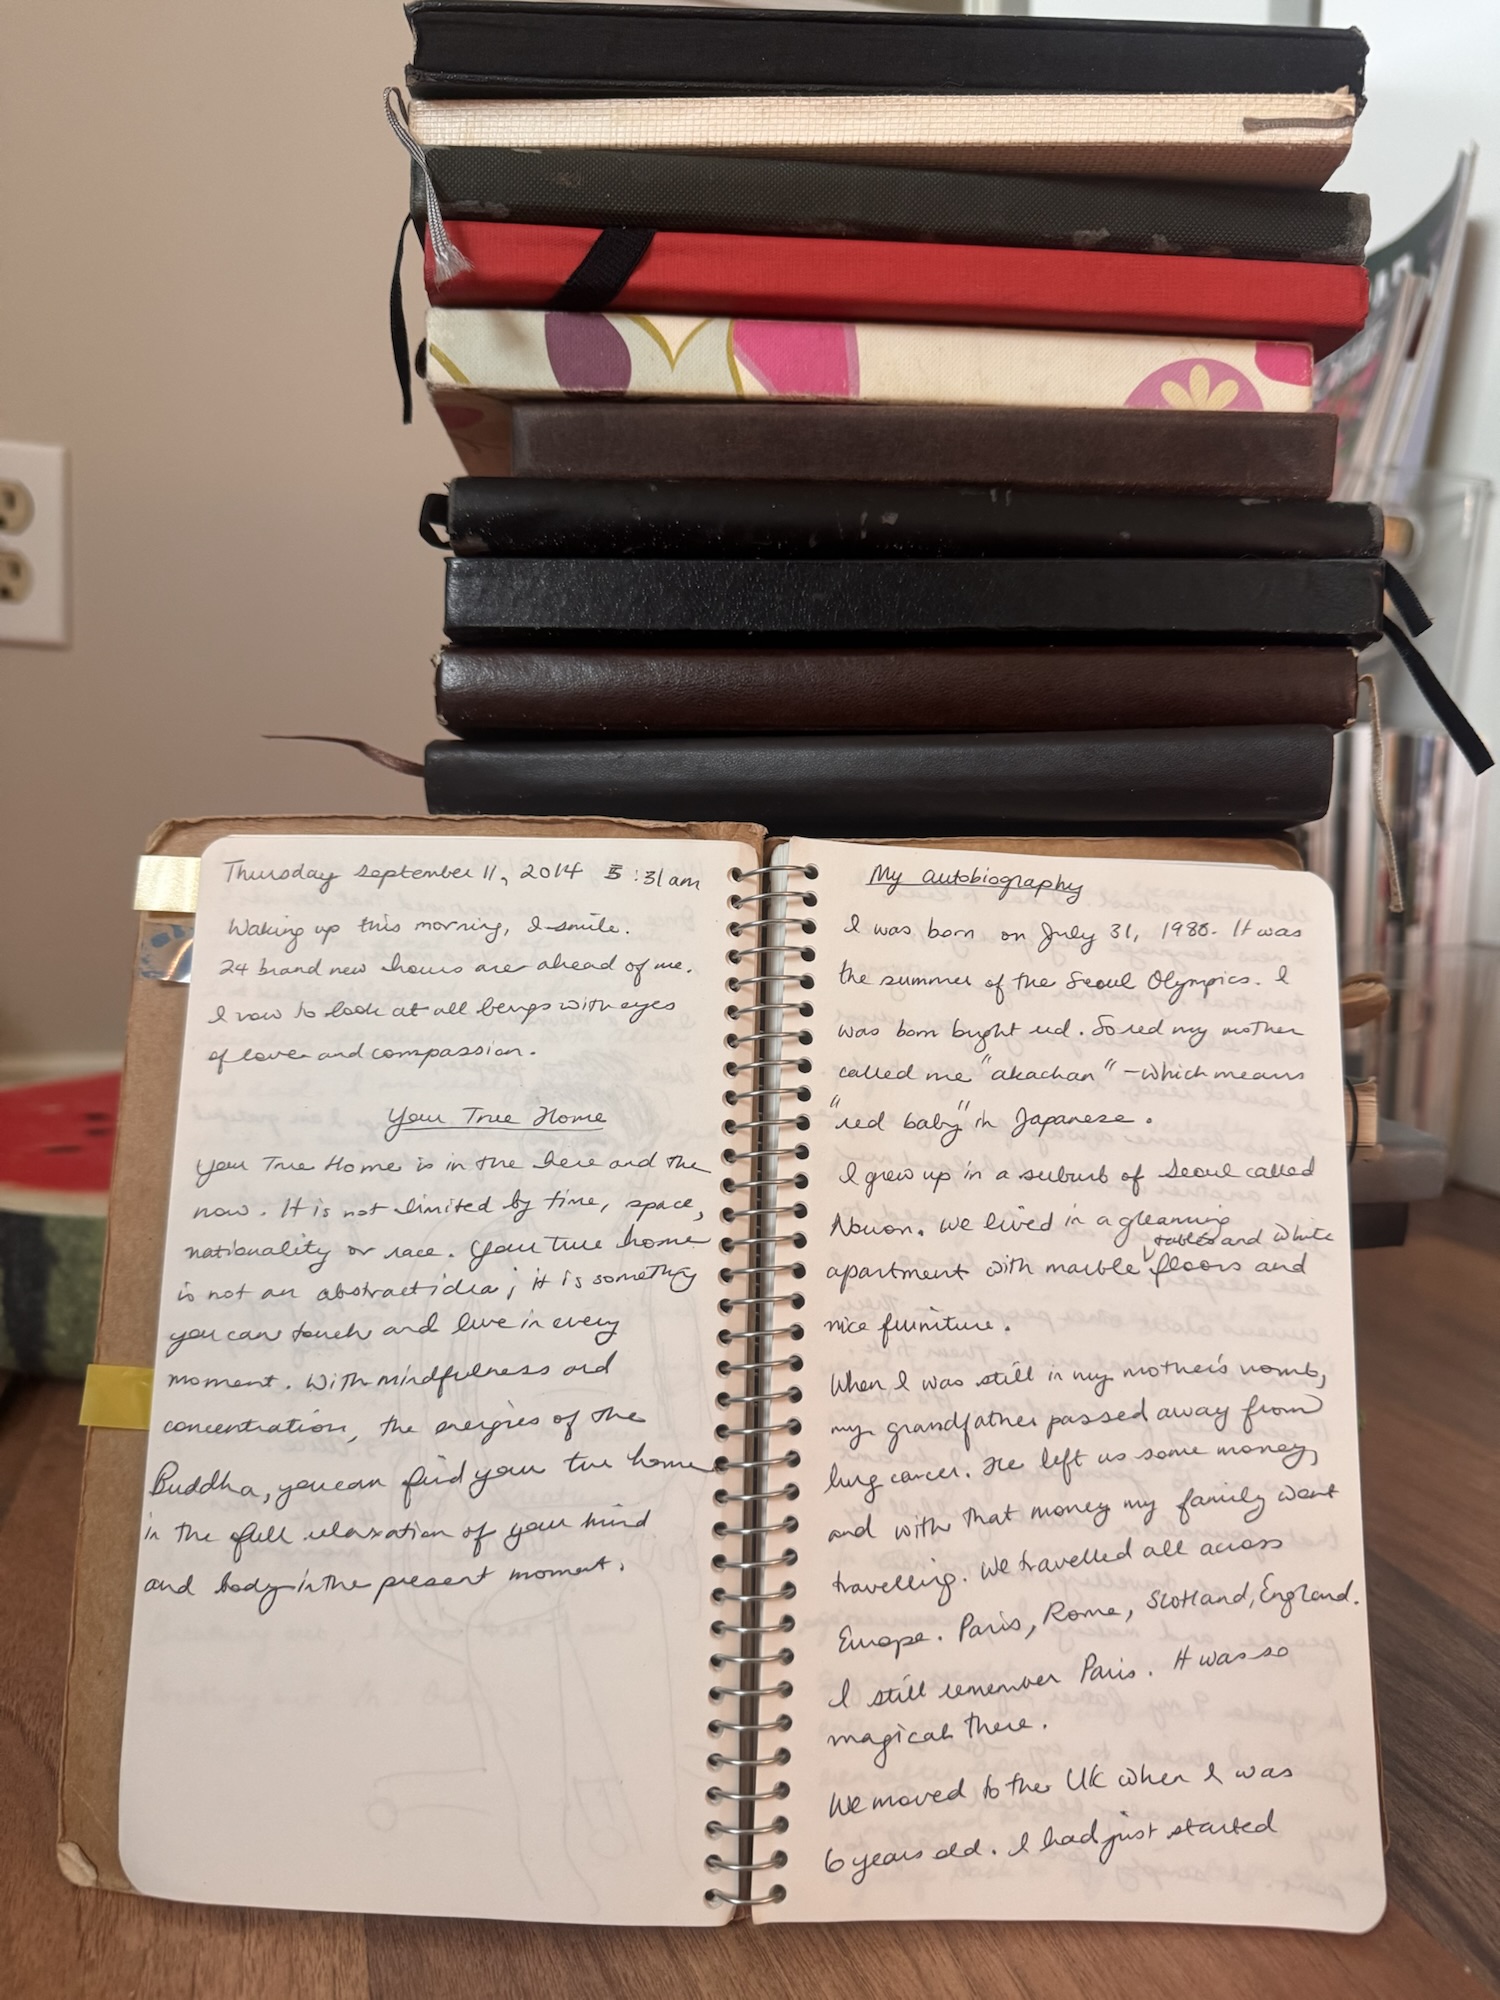 Thursday September 11, 2014 5:31am
Waking up this morning, I smile.
24 brand new hours are ahead of me.
I vow to look at all beings with eyes
of love and compassion.
Your True Home
Your True Home is in the here and the
now. It is not limited by time, space,
nationality or race. Your true home
is not an abstract idea; it is something
you can touch and live in every
moment. With mindfulness and
concentration, the energies of the
Buddha, you can find your true home
in the full relaxation of your mind
and body in the present moment.
My Autobiography
I was born on July 31, 1988. It was
the summer of the Seoul Olympics. I
was born bright red. So red my mother
called me "akachan" - which means
"red baby" in Japanese.
I grew up in a suburb of Seoul called
We lived in a gleaming
apartment with marble tables and white floors and
nice furniture.
When I was still in my mother's womb,
my grandfather passed away from
lung cancer. He left us some money,
and with that money my family went
travelling. We travelled all across
Europe. Paris, Rome, Scotland, England.
I still remember Paris. It was so
magical there.
We moved to the UK when I was
6 years old. I had just started